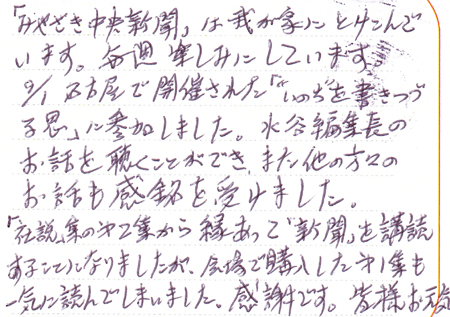 「みやざき中央新聞」は我が家にとけこんで
います。毎週楽しみにしています。
9/1 名古屋で開催された「"いのち"を書きつづ
る思」に参加しました。水谷編集長の
お話を聴くことができ、また他の方々の
お話も感銘を受けました。
「社説」集の第2集から縁あって「新聞」を講読
することになりましたが、会場で購入した第1集も
一気に読んでしまいました。感謝です。皆様お元気